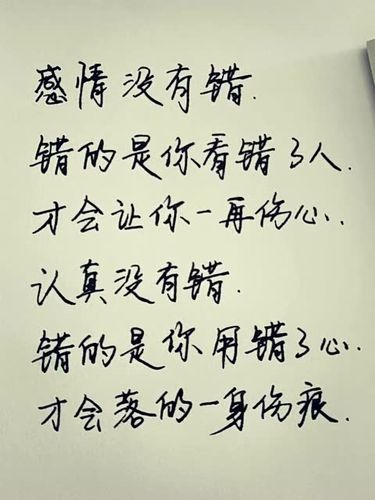 感情没有错.
错的是你看错了人.
才会让你一再伤心.
认真没有错.
错的是你用错了心.
才会落的一身伤痕.